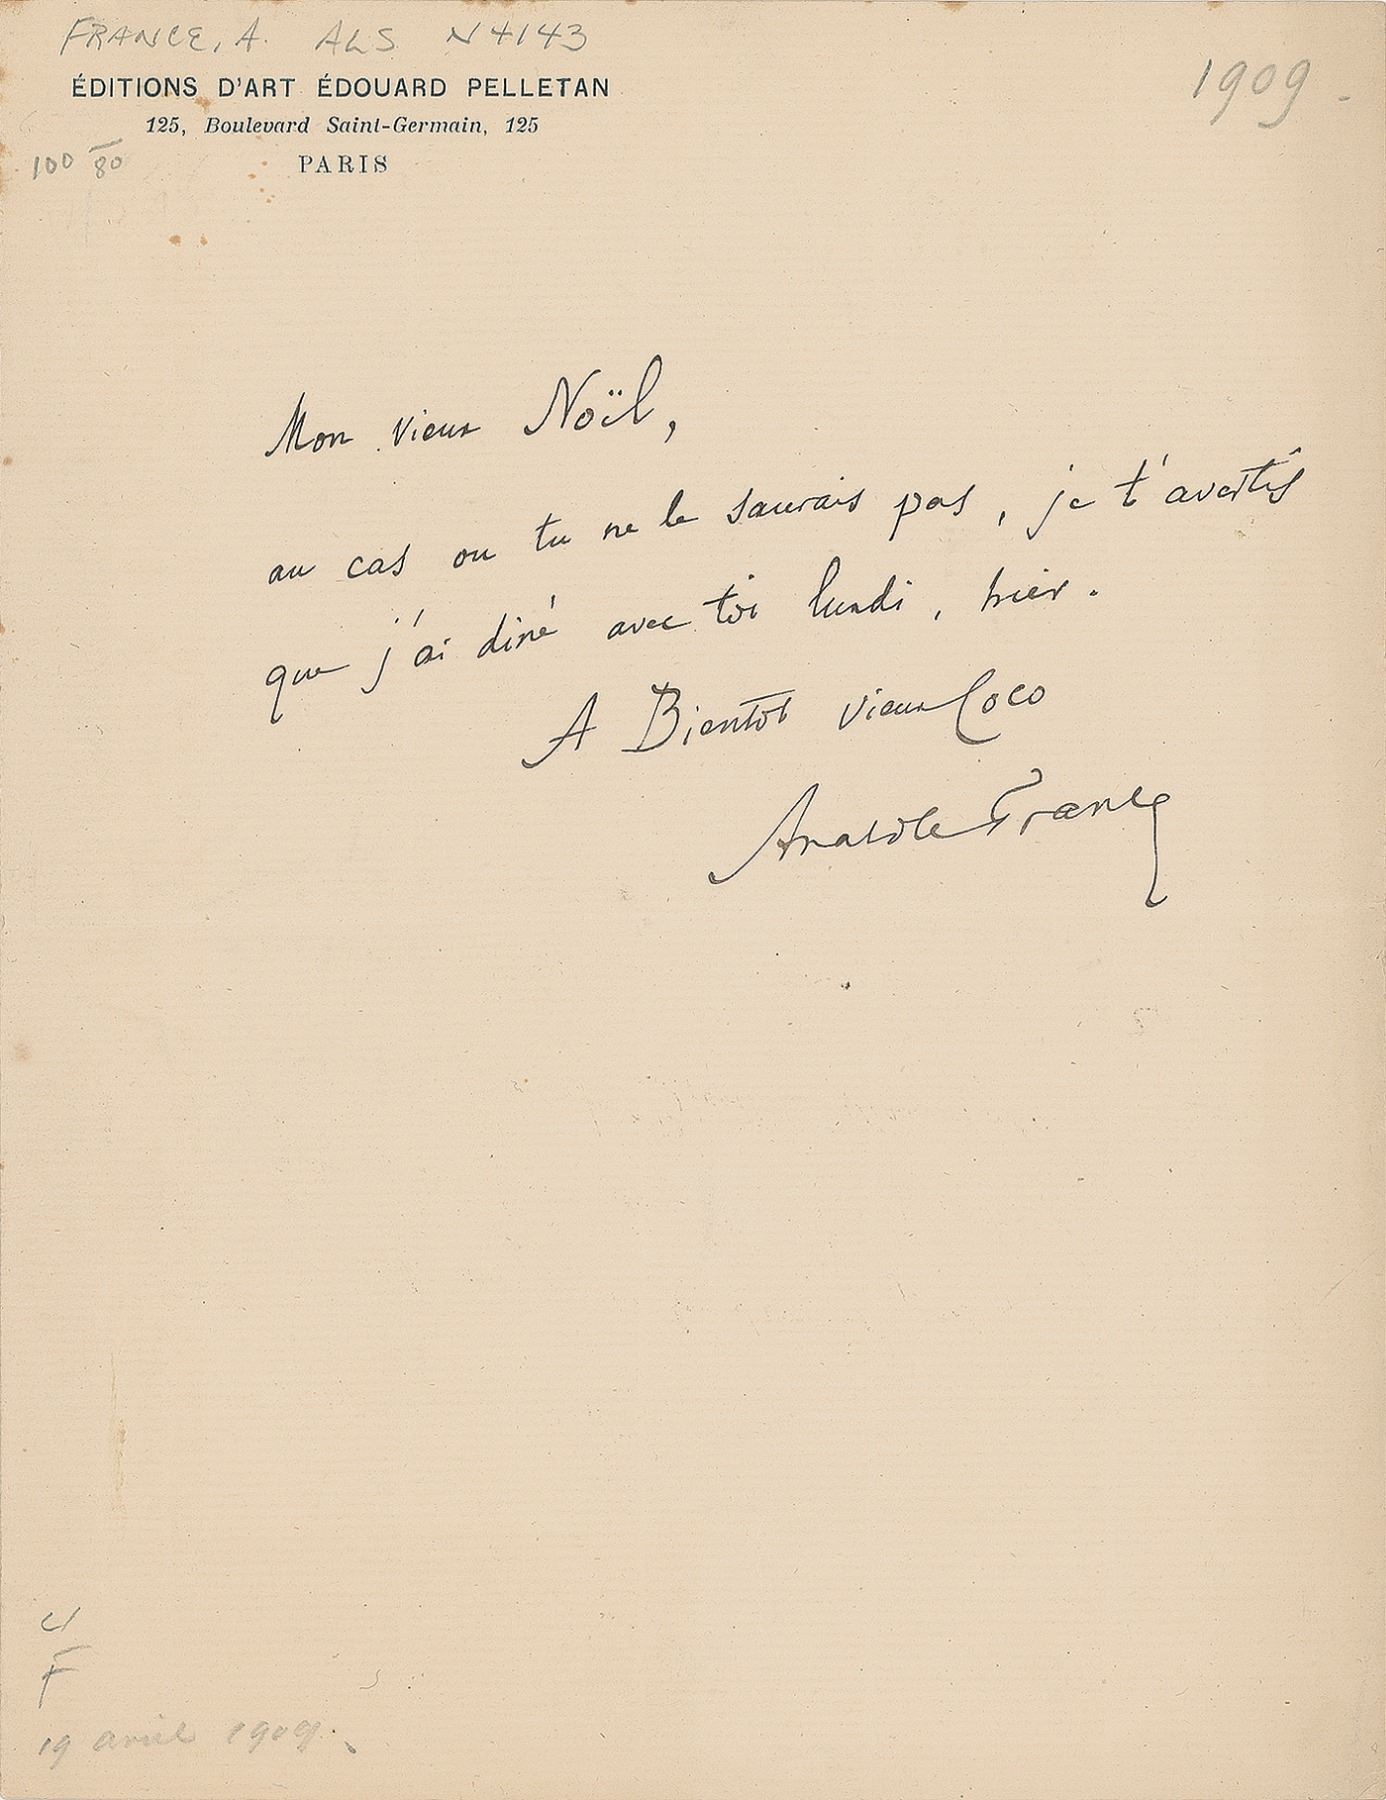 FRANCE, A. ALS N4143
1909
ÉDITIONS D'ART ÉDOUARD PELLETAN
125, Boulevard Saint-Germain, 125
PARIS
100 80
Mon vieux Noël,
au cas ou tu ne le saurais pas, je t'avertis
que j'ai diné avec toi lundi, hier.
A Bientôt vieux Coco
Anatole France
F
19 avril 1909.